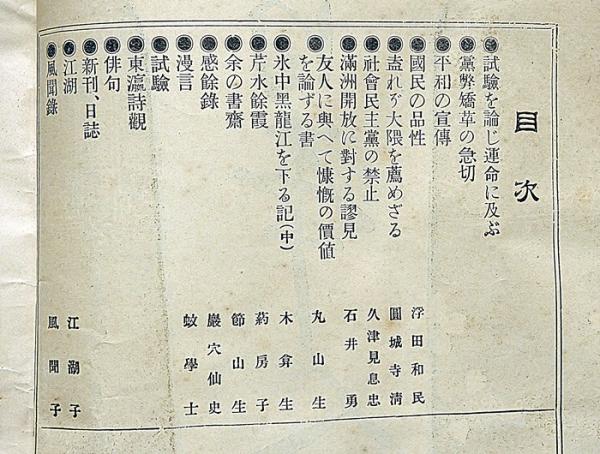 目次
◉試驗を論じ運命に及ぶ
◉黨弊矯革の急切
◉平和の宣傳
◉國民の品性 浮田和民
◉盍れぞ大隈を薦めざる 圓城寺淸
◉社會民主黨の禁止 久津見息忠
◉滿洲開放に對する謬見 石井勇
◉友人に與へて慷慨の價値
を論ずる書 丸山生
◉氷中黑龍江を下る記(中) 木弇生
◉芹水餘霞 葯房子
◉余の書齋 節山生
◉感餘錄 巖穴仙史
◉漫言 蚊學士
◉試驗
◉東瀛詩觀
◉俳句
◉新刊、日誌
◉江湖 江湖子
◉風聞錄 風聞子